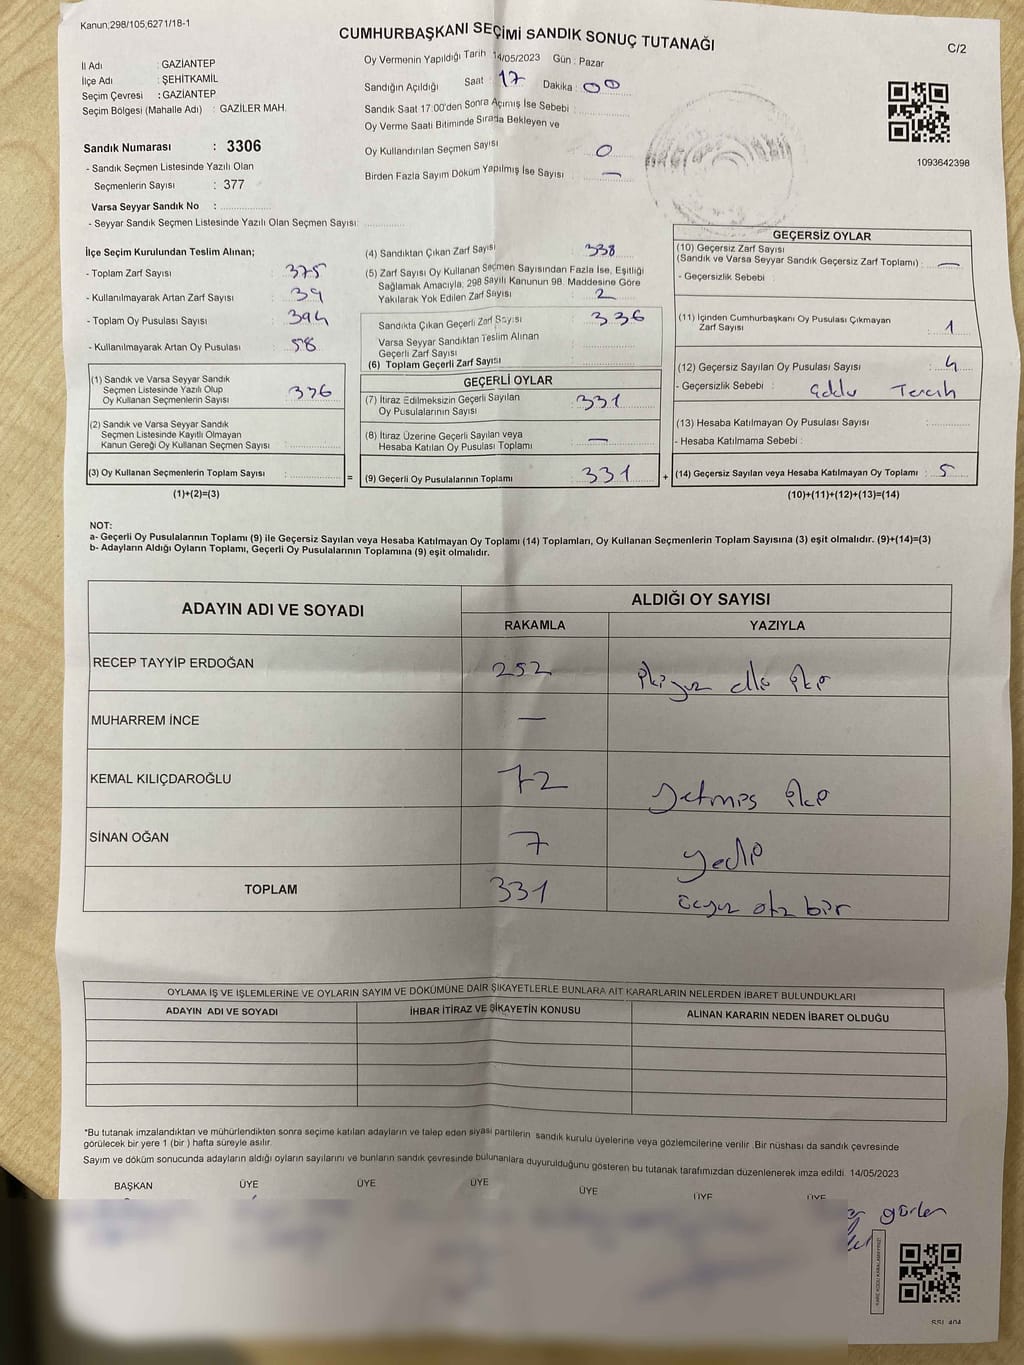 Kanun:298/105,6271/18-1
CUMHURBAŞKANI SEÇİMİ SANDIK SONUÇ TUTANAĞI
C/2
İl Adı : GAZİANTEP
İlçe Adı : ŞEHİTKAMİL
Seçim Çevresi : GAZİANTEP
Seçim Bölgesi (Mahalle Adı) : GAZİLER MAH.
Sandık Numarası : 3306
- Sandık Seçmen Listesinde Yazılı Olan
Seçmenlerin Sayısı : 377
Varsa Seyyar Sandık No :
- Seyyar Sandık Seçmen Listesinde Yazılı Olan Seçmen Sayısı:
Oy Vermenin Yapıldığı Tarih 14/05/2023 Gün : Pazar
Sandığın Açıldığı Saat : 17 Dakika : 00
Sandık Saat 17:00'den Sonra Açımış İse Sebebi :
Oy Verme Saati Bitiminde Sırada Bekleyen ve
Oy Kullandırılan Seçmen Sayısı 0
Birden Fazla Sayım Döküm Yapılmış İse Sayısı : —
1093642398
İlçe Seçim Kurulundan Teslim Alınan;
- Toplam Zarf Sayısı : 375
- Kullanılmayarak Artan Zarf Sayısı : 39
- Toplam Oy Pusulası Sayısı : 394
- Kullanılmayarak Artan Oy Pusulası : 58
(1) Sandık ve Varsa Seyyar Sandık
Seçmen Listesinde Yazılı Olup
Oy Kullanan Seçmenlerin Sayısı : 336
(2) Sandık ve Varsa Seyyar Sandık
Seçmen Listesinde Kayıtlı Olmayan
Kanun Gereği Oy Kullanan Seçmen Sayısı :
(3) Oy Kullanan Seçmenlerin Toplam Sayısı :
(1)+(2)=(3)
(4) Sandıktan Çıkan Zarf Sayısı : 338
(5) Zarf Sayısı Oy Kullanan Seçmen Sayısından Fazla İse, Eşitliği
Sağlamak Amacıyla, 298 Sayılı Kanunun 98. Maddesine Göre
Yakılarak Yok Edilen Zarf Sayısı : 2
Sandıkta Çıkan Geçerli Zarf Sayısı : 336
Varsa Seyyar Sandıktan Teslim Alınan
Geçerli Zarf Sayısı :
(6) Toplam Geçerli Zarf Sayısı :
GEÇERLİ OYLAR
(7) İtiraz Edilmeksizin Geçerli Sayılan
Oy Pusulalarının Sayısı : 331
(8) İtiraz Üzerine Geçerli Sayılan veya
Hesaba Katılan Oy Pusulası Toplamı : —
= (9) Geçerli Oy Pusulalarının Toplamı : 331
GEÇERSİZ OYLAR
(10) Geçersiz Zarf Sayısı
(Sandık ve Varsa Seyyar Sandık Geçersiz Zarf Toplamı) : —
- Geçersizlik Sebebi :
(11) İçinden Cumhurbaşkanı Oy Pusulası Çıkmayan
Zarf Sayısı : 1
(12) Geçersiz Sayılan Oy Pusulası Sayısı : 4
- Geçersizlik Sebebi : Tercih
(13) Hesaba Katılmayan Oy Pusulası Sayısı :
- Hesaba Katılmama Sebebi :
+ (14) Geçersiz Sayılan veya Hesaba Katılmayan Oy Toplamı : 5
(10)+(11)+(12)+(13)=(14)
NOT:
a- Geçerli Oy Pusulalarının Toplamı (9) ile Geçersiz Sayılan veya Hesaba Katılmayan Oy Toplamı (14) Toplamları, Oy Kullanan Seçmenlerin Toplam Sayısına (3) eşit olmalıdır. (9)+(14)=(3)
b- Adayların Aldığı Oyların Toplamı, Geçerli Oy Pusulalarının Toplamına (9) eşit olmalıdır.
ADAYIN ADI VE SOYADI
ALDIĞI OY SAYISI
RAKAMLA YAZIYLA
RECEP TAYYİP ERDOĞAN 252 ikiyüz elli iki
MUHARREM İNCE —
KEMAL KILIÇDAROĞLU 72 yetmiş iki
SİNAN OĞAN 7 yedi
TOPLAM 331 üçyüz otuz bir
OYLAMA İŞ VE İŞLEMLERİNE VE OYLARIN SAYIM VE DÖKÜMÜNE DAİR ŞİKAYETLERLE BUNLARA AİT KARARLARIN NELERDEN İBARET BULUNDUKLARI
ADAYIN ADI VE SOYADI İHBAR İTİRAZ VE ŞİKAYETİN KONUSU ALINAN KARARIN NEDEN İBARET OLDUĞU
*Bu tutanak imzalandıktan ve mühürlendikten sonra seçime katılan adayların ve talep eden siyasi partilerin sandık kurulu üyelerine veya gözlemcilerine verilir .Bir nüshası da sandık çevresinde
görülecek bir yere 1 (bir ) hafta süreyle asılır.
Sayım ve döküm sonucunda adayların aldığı oyların sayılarını ve bunların sandık çevresinde bulunanlara duyurulduğunu gösteren bu tutanak tarafımızdan düzenlenerek imza edildi. 14/05/2023
BAŞKAN ÜYE ÜYE ÜYE ÜYE ÜYE ÜYE